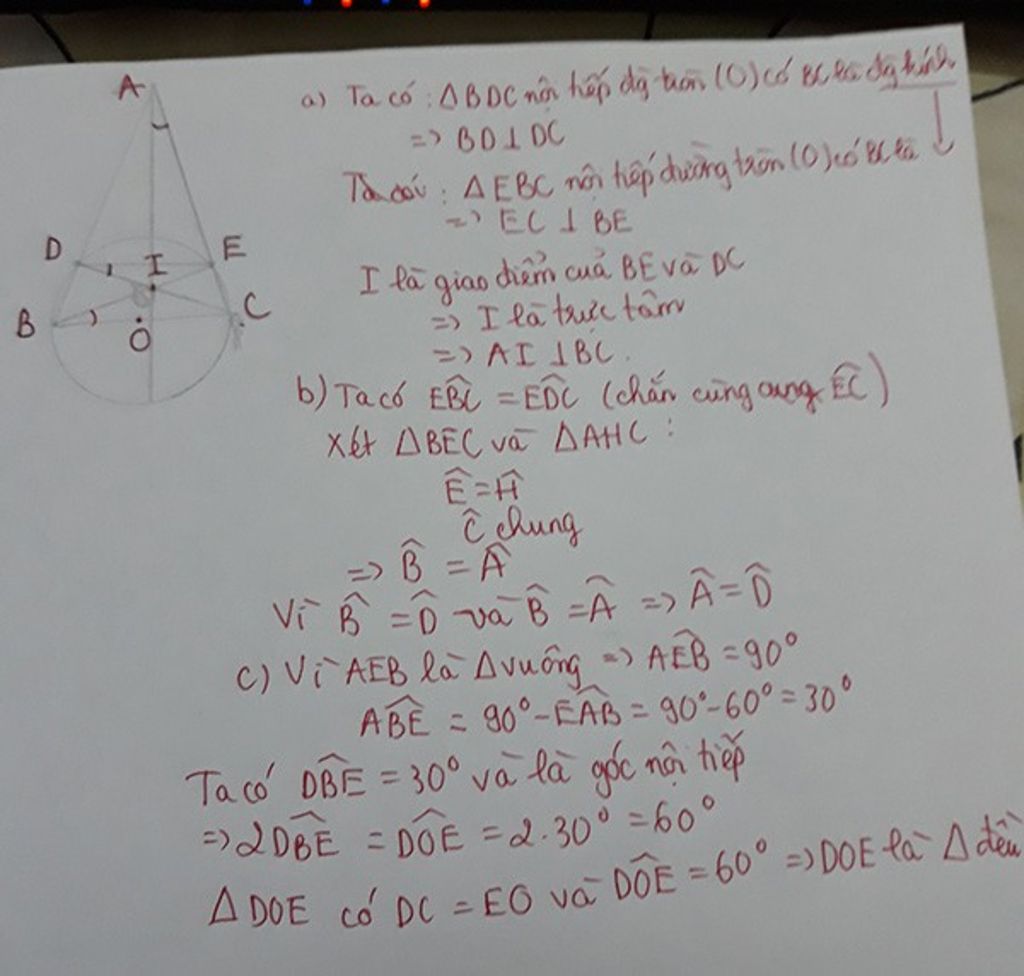 A
D
E
I
B
C
O
a) Ta có : ΔBDC nội tiếp đg tròn (O) có BC là đg kính
=> BD⊥DC
Ta có : ΔEBC nội tiếp đường tròn (O) có BC là
=> EC ⊥ BE
I là giao điểm của BE và DC
=> I là trực tâm
=> AI ⊥BC.
b) Ta có EB̂C = ED̂C (chắn cùng cung EC)
Xét ΔBEC và ΔAHC :
Ê = Ĥ
Ĉ chung
=> B̂ = Â
Vì B̂ = D̂ và B̂ = Â => Â = D̂
c) Vì AEB là Δvuông => AÊB = 90°
AB̂E = 90° - EÂB = 90° - 60° = 30°
Ta có DB̂E = 30° và là góc nội tiếp
=> 2DB̂E = DÔE = 2.30° = 60°
Δ DOE có DC = EO và DÔE = 60° => DOE là Δ đều